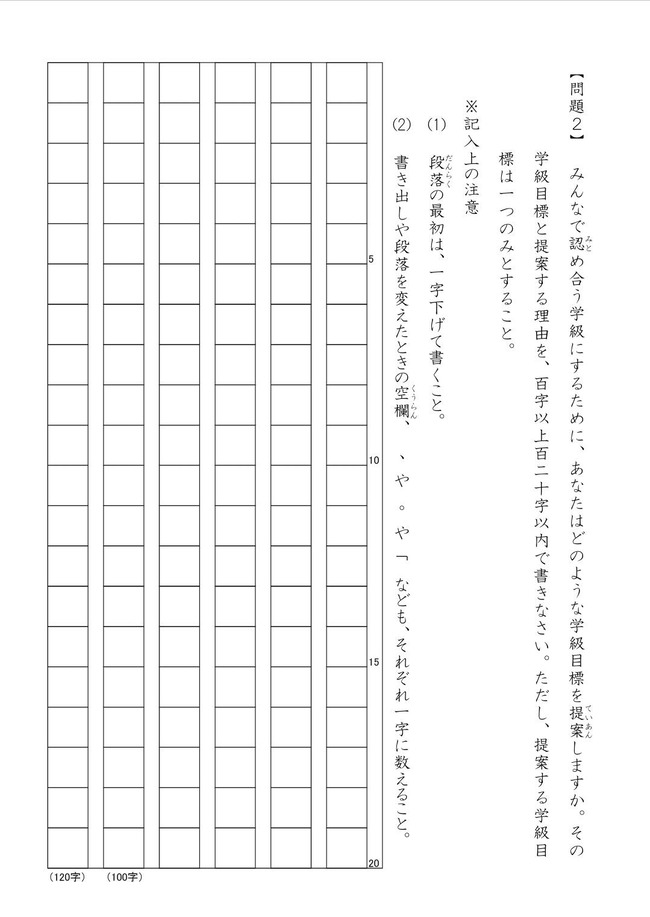 【問題２】 みんなで認め合う学級にするために、あなたはどのような学級目標を提案しますか。その
みと
ていあん
学級目標と提案する理由を、百字以上百二十字以内で書きなさい。ただし、提案する学級目
標は一つのみとすること。
※記入上の注意
(1) 段落の最初は、一字下げて書くこと。
だんらく
(2) 書き出しや段落を変えたときの空欄、 、や 。や 「 なども、それぞれ一字に数えること。
くうらん
5
10
15
20
(100字)
(120字)